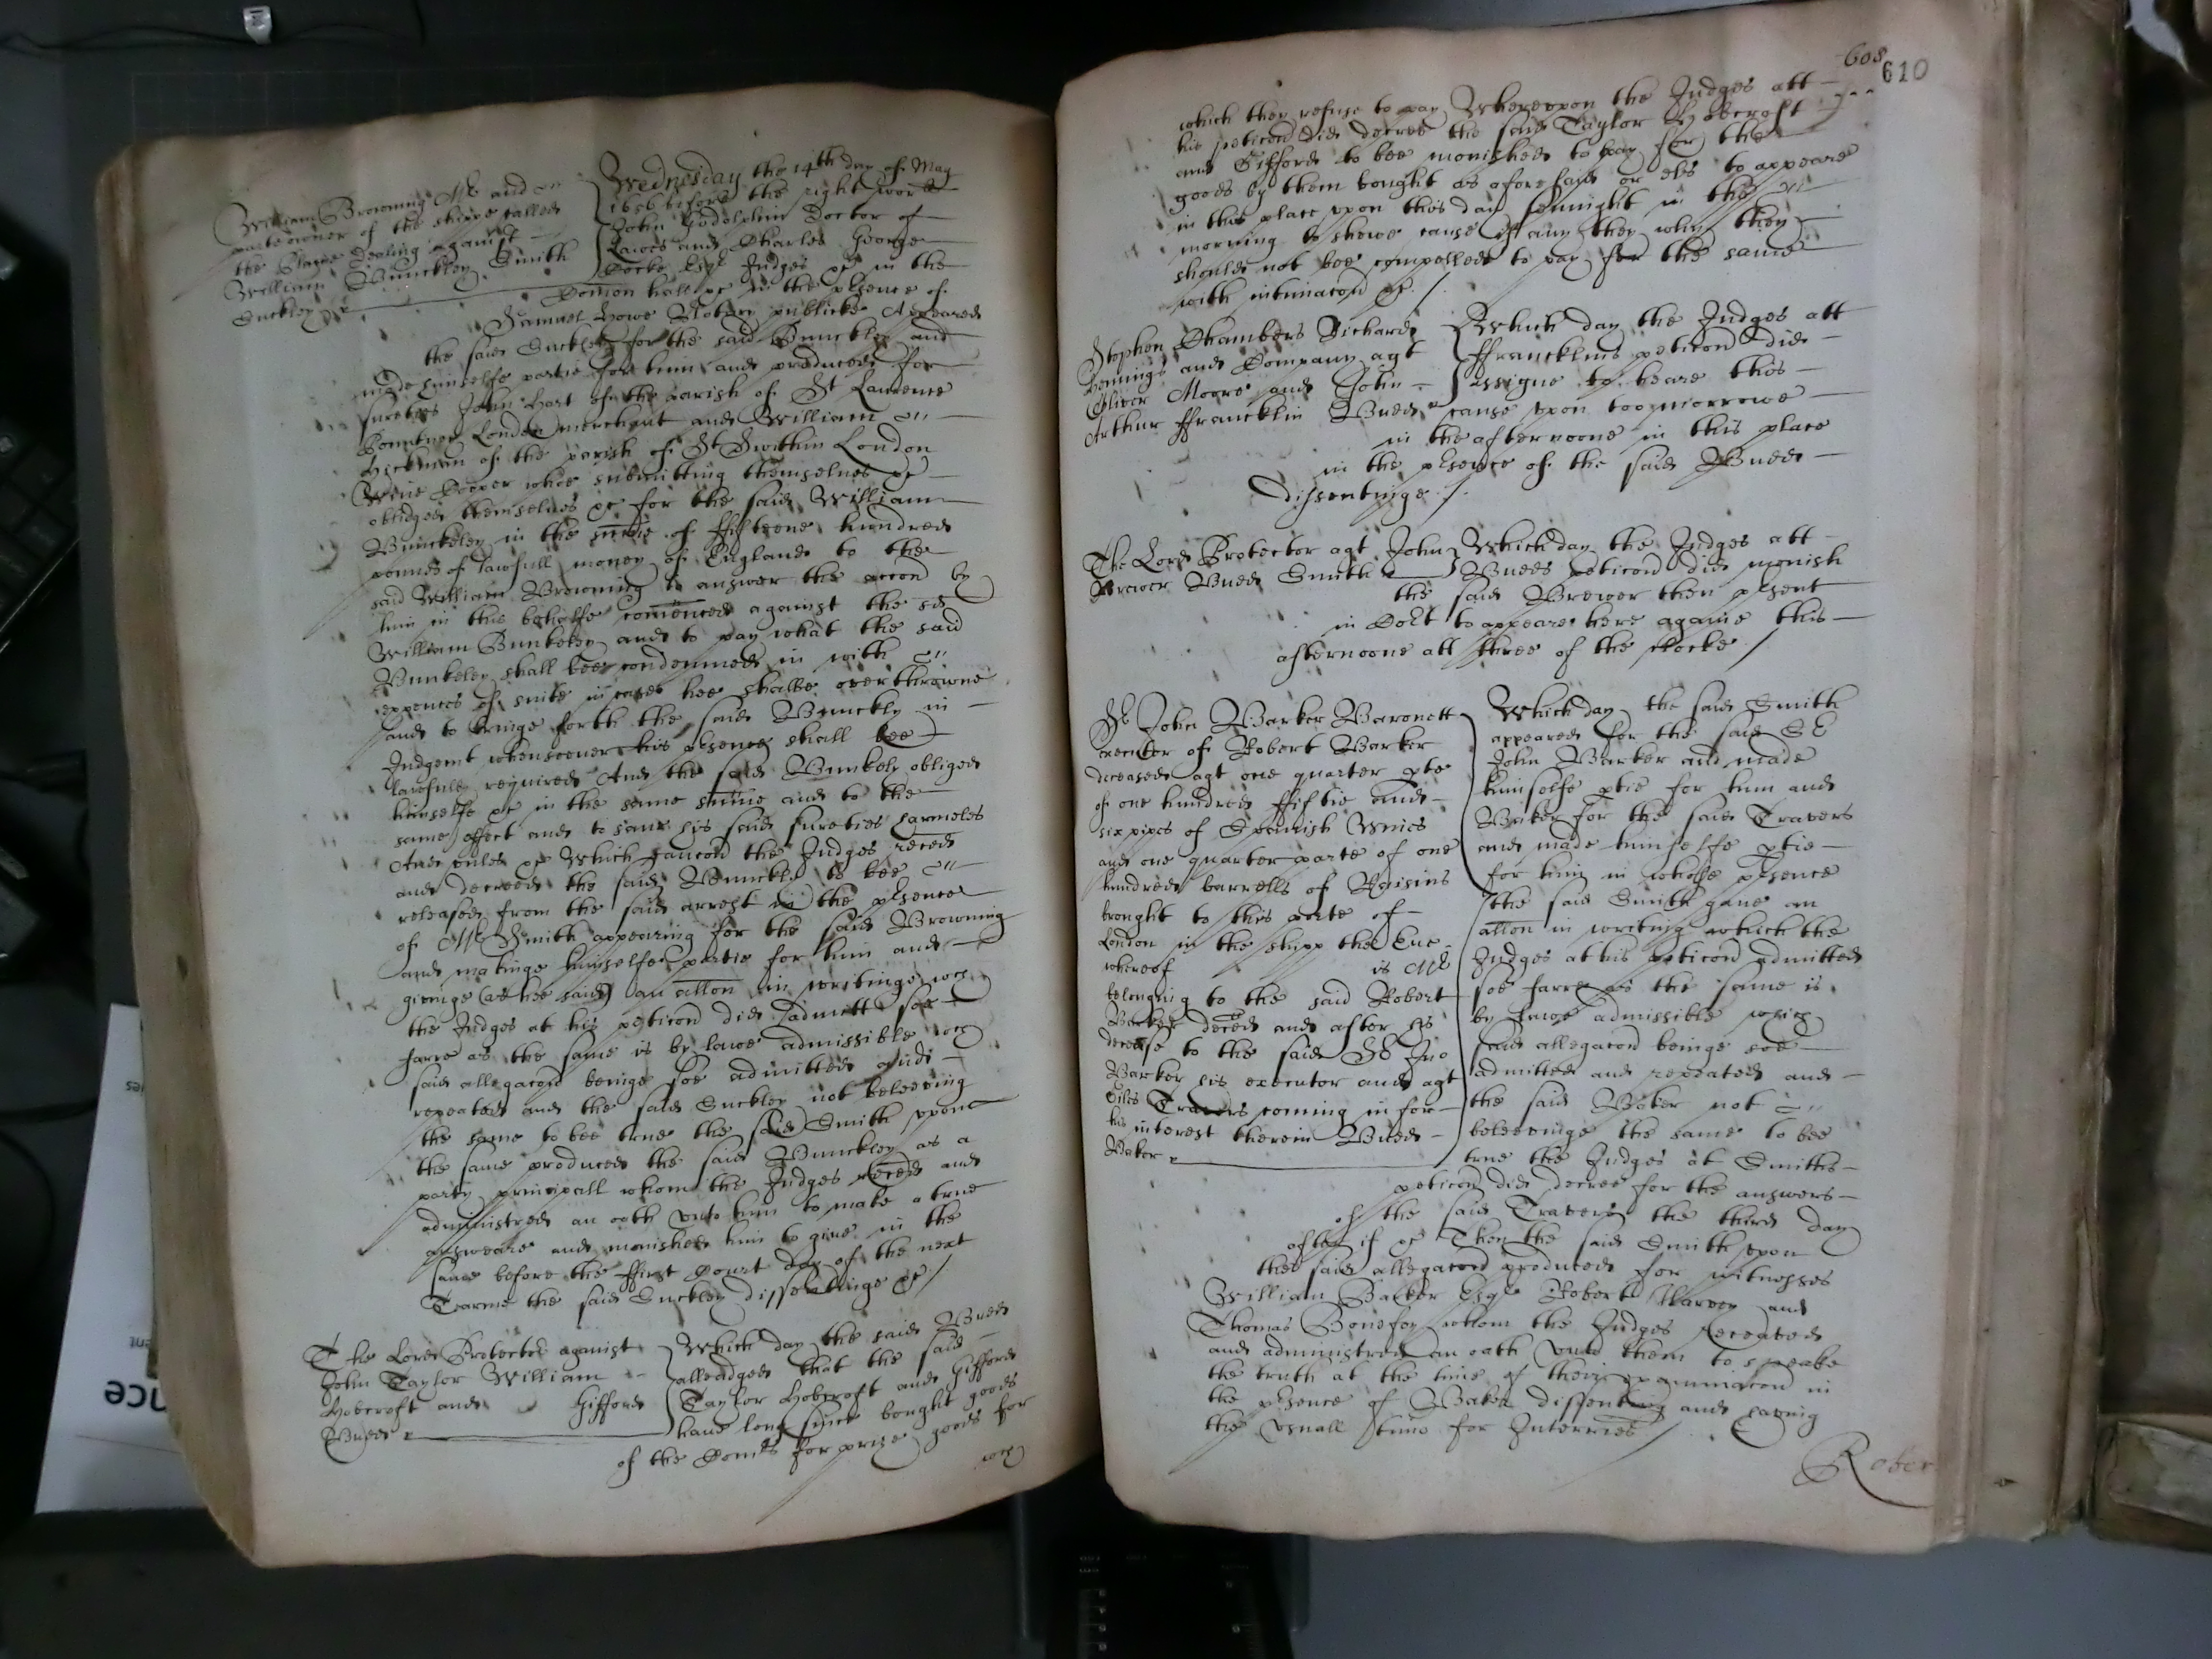 William Browning Mr and
parte owner of the shippe called
the Blaze Dealing against
William Bunckley Smith
Suckley
Wednesday the 14th day of May
1656 before the right worll
John Godolphin Doctor of
Lawes and Charles George
Cocke Esqr Judges &c in the
Comon hall &c in the pḥsence of
Samuel Howe Notary publicke Appeared
the said Suckley for the said Bunckley and
made himselfe partie for him and produced for
sureties John Hart of the parish of St Laurence
Pountney London merchant and William
Hickman of the parish of St Swithin London
Wine Cooper whoe submitting themselves &c
obliged themselves &c for the said William
Bunckeley in the summe of ffifteene hundred
pounds of lawfull money of England to the
said William Browning to answer the accon by
him in this behalfe comenced against the sd
William Bunkeley and to pay what the said
Bunkeley shall bee condemned in with
expences of suite in case hee shalbe overthrowne
and to bringe forth the said Bunckly in
Judgemt whensoever his psence shall bee
lawfully required And the said Bunkely obliged
himselfe &c in the same summe and to the
same effect and to save his said sureties harmeles
And unles &c Which caucon the Judges reced
and decreed the said Bunckly to bee
released from the said arrest in the psence
of Mr Smith appearing for the said Browning
and makinge himselfe partie for him and
givinge (as hee said) an allon in writinge wch
the Judges at his peticon did admitt soe
farre as the same is by lawe admissible wch
said allegacon beinge soe admitted and
repeated and the said Suckley not beleeving
the same to bee true the said Smith upon
the same produced the said Bunckley as a
party principall whom the Judges reced and
administred an oath unto him to make a true
answeare and monished him to give in the
same before the ffirst Court day of the next
Tearme the said Suckley dissentinge &c/
The Lord Protector against
John Taylor William
Hobcroft and Gifford
Budd
Which day the said Budd
alleadged that the said
Taylor Hobcroft and Gifford
have long since bought goods
of the Comrs for prize goods for
wch
608
610
which they refuse to pay Whereupon the Judges att
his peticon did decree the said Taylor Hobcroft
and Gifford to bee monished to pay for the
goods by them bought as aforesaid or els to appeare
in this place upon this day sennight in the
morning to shewe cause if any they why they
should not bee compelled to pay for the same
with intimacon &c/
Stephen Chambers Richard
Jennings and Company agt
Oliver Moore and John
Arthur ffrancklin Budd
Which day the Judges att
ffrancklins peticon did
assigne to heare this
cause upon too morrowe
in the afternoone in this place
in the psence of the said Budd
dissentinge/
The Lord Protector agt John
Brewer Budd Smith
Which day the Judges att
Budds peticon did monish
the said Brewer then psent
in Court to appeare here againe this
afternoone att three of the clocke/
Sr John Barker Baronett
executor of Robert Barker
deceased agt one quarter pte
of one hundred ffiftie and
six pipes of Spanish Wines
and one quarter parte of one
hundred barrells of Raisins
brought to this porte of
London in the shipp the
whereof is Mr
belonging to the said Robert
Barker deced and after his
decease to the said Sr Jno
Barker his executor and agt
Giles Travers coming in for
his interest therein Budd
Baker
Which day the said Smith
appeared for the said Sr
John Barker and made
himselfe ptie for him and
Baker for the said Travers
and made himselfe ptie
for him in whose psence
the said Smith gave an
allon in writing which the
Judges at his peticon admitted
soe farre as the same is
by Lawe admissible which
said allegacon beinge soe
admitted and repeated and
the said Baker not
beleevinge the same to bee
true the Judges at Smiths
peticon did decree for the answers
of the said Travers the third day
after if &c Then the said Smith upon
the said allegacon produced for witnesses
William Barker Esqr Robert Harvey and
Thomas Bonefoy whom the Judges receaved
and administred an oath unto them to speake
the truth at the time of their examinacon in
the psence of Baker dissenting and saving
the usuall time for Interries/
Rober